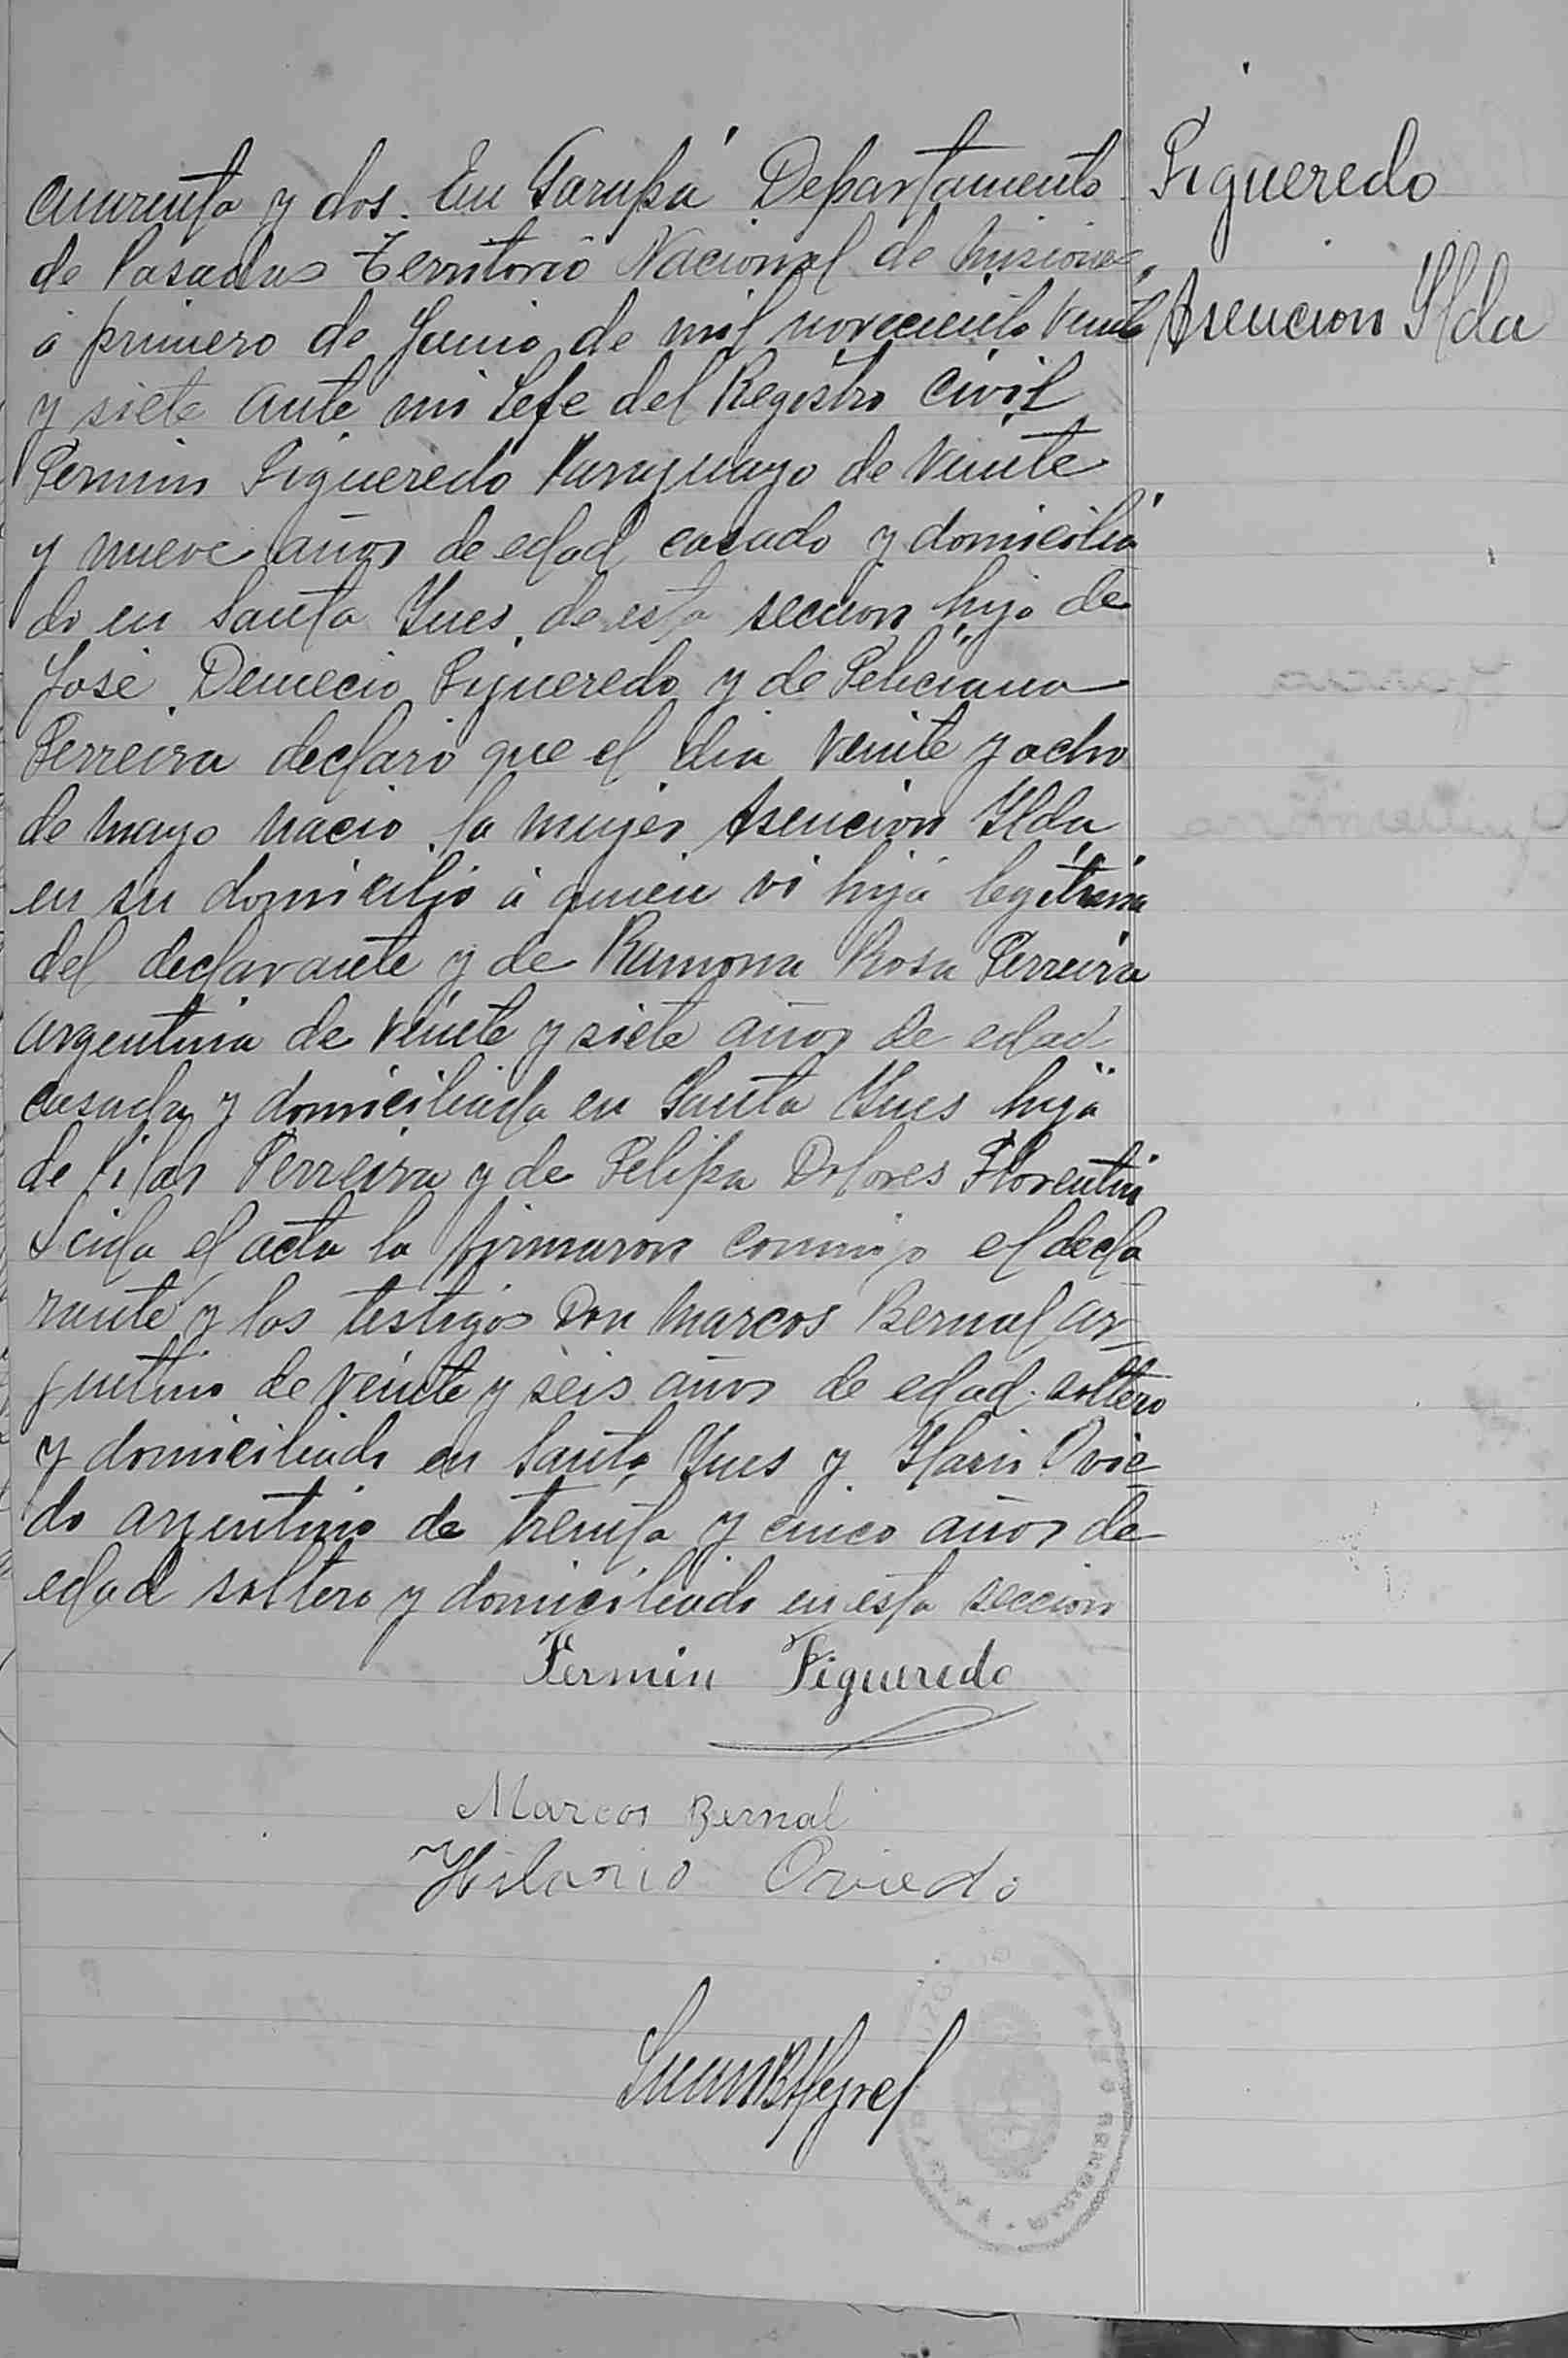 cuarenta y dos. En Garupá Departamento
de Posadas Territorio Nacional de Misiones,
á primero de Junio de mil novecientos veinte
y siete ante mi Jefe del Registro Civil
Fermin Figueredo Paraguayo de veinte
y nueve años de edad casado y domicilia
do en Santa Ynes de esta seccion hijo de
José Demecio Figueredo y de Feliciana
Ferreira declaró que el dia veinte y ocho
de mayo nació la mujer Asencion Ylda
en su domicilio á quien vi hija legitima
del declarante y de Ramona Rosa Ferreira
argentina de veinte y siete años de edad
casada y domiciliada en Santa Ynes hija
de Pilar Ferreira y de Felipa Dolores Florentin
Leida el acta la firmaron conmigo el decla
rante y los testigos Don Marcos Bernal ar
gentino de veinte y seis años de edad soltero
y domiciliado en Santa Ynes y Ylario Ovie
do argentino de treinta y cinco años de
edad soltero y domiciliado en esta seccion
Fermin Figueredo
Marcos Bernal
Hilario Oviedo
Figueredo
Asencion Ylda